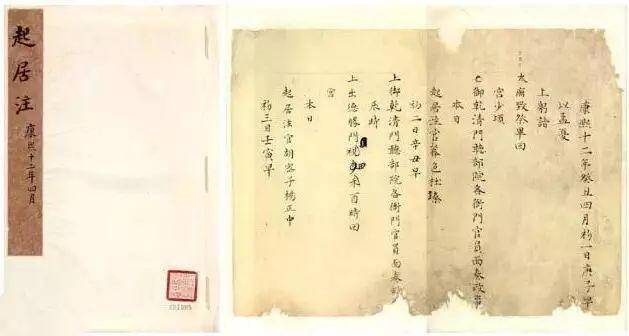 起居注
康熙十二年四月
康熙十二年癸丑四月初一日庚子早
以孟夏
上躬詣
太廟致祭畢回
宮少頃
上御乾清門聽部院各衙門官員面奏政事
本日
起居注官莫色杜臻
初二日辛丑早
上御乾清門聽部院各衙門官員面奏政
辰時
上出德勝門視禾酉時回
宮
本日
起居注官胡密子楊正中
初三日壬寅早